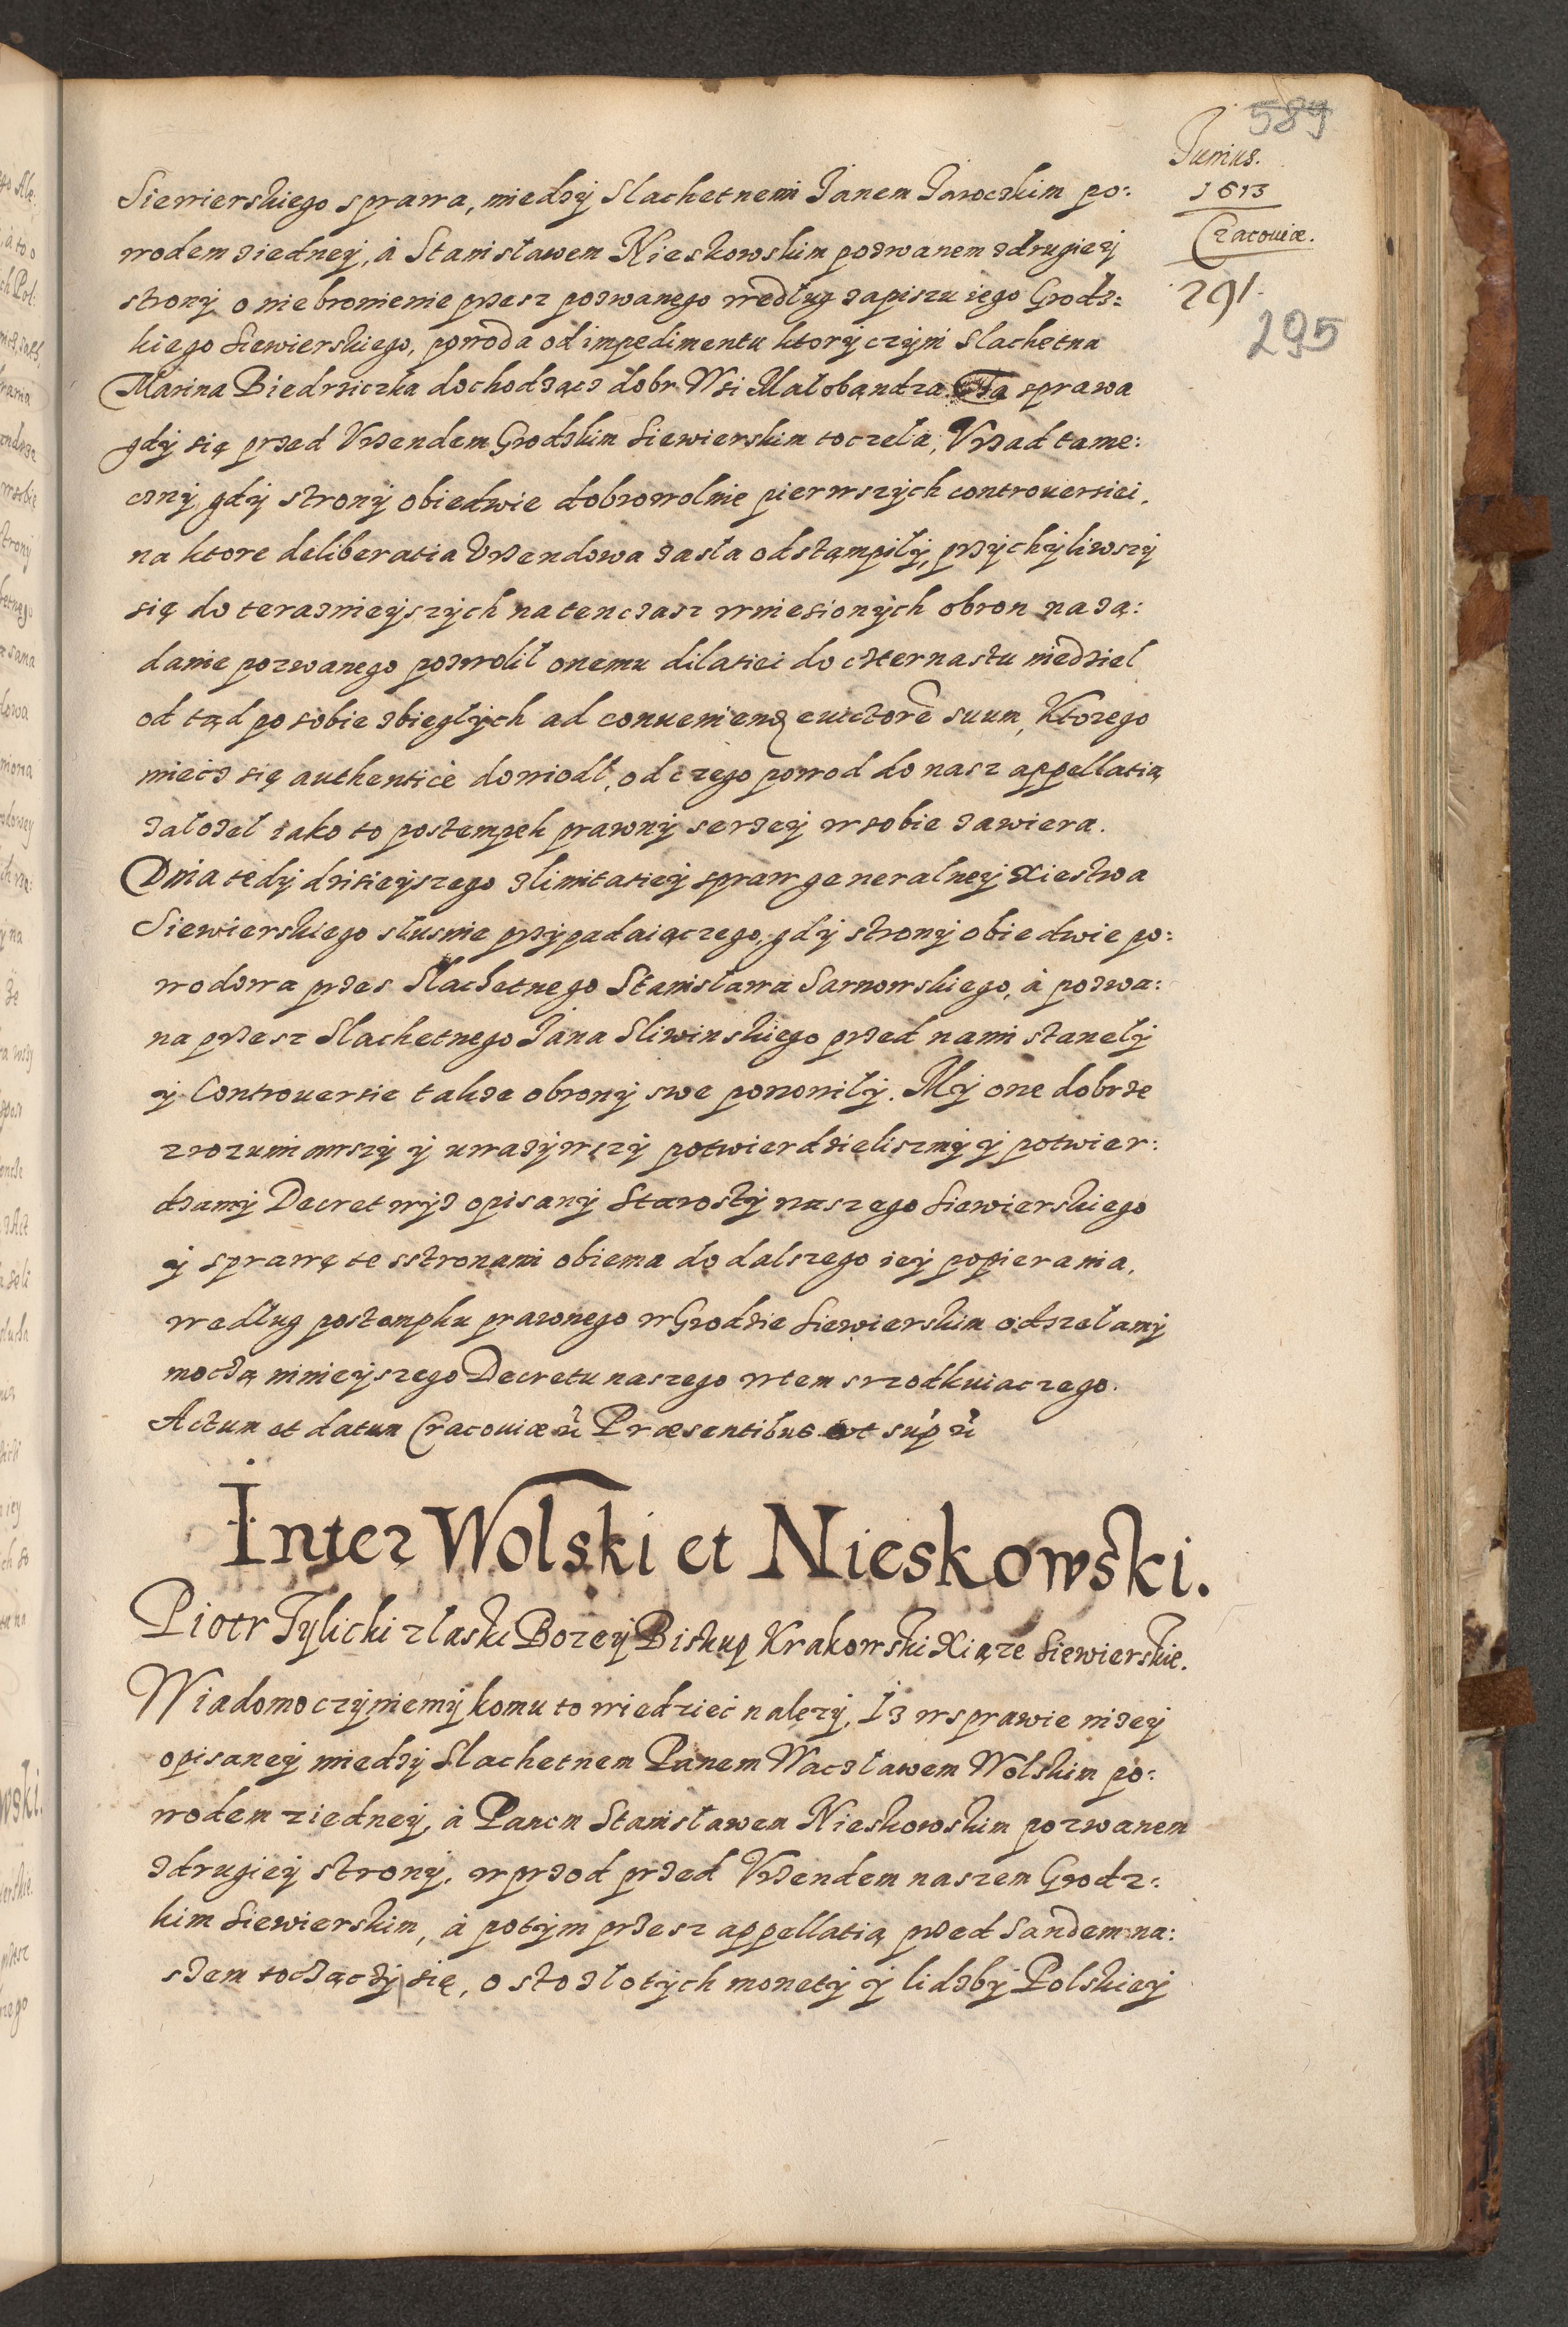 589
Junius.
1613
Cracouiæ.
291.
295
Siewierskiego sprawa, miedzy Slachetnemi Janem Jaroczkim po:
wodem ziedney, à Stanisławem Nieskowskim pozwanem zdrugiey
strony o niebronienie przesz pozwanego według zapiszu iego Grodz:
kiego Siewierskiego, powoda od impedimentu ktory czyni Slachetna
Marina Biedrziczka dochodząci dobr Wsi Małobandza. Ta sprawa
gdy się przed Vrzendem Grodzkim Siewierskim toczela, Vrzad tame:
czny, gdy strony obiedwie dobrowolnie pierwszych controuersiei,
na ktore deliberatia Vrzendowa zasła odstąmpiły, przychyliwszy
się do terazniejszych natenczasz wniesionych obron na zą:
danie pozwanego pozwolił onemu dilatiei do czternastu niedziel
od tąd po sobie zbiegłych ad conueniend euictorē suum, Ktorego
miecz się authenticè dowiodł, od czego powod do nasz appellatią
załozeł iako to postempek prawny serzey w sobie zawiera.
Dnia tedy dzisieyszego zlimitatiey spraw generalney Xiestwa
Siewierskiego słusnie przypadaiączego, gdy strony obiedwie po:
wodowa przes Slachetnego Stanisława Sarnowskiego, à pozwa:
na przesz Slachetnego Jana Sliwinskiego przed nami staneły
y Controuersie takze obrony swe ponowiły. My one dobrze
zrozumiawszy y uwazywszy potwierdzieliszmy y potwier:
dzamy Decret wyz opisany Starosty naszego Siewierskiego
y sprawę te sstronami obiema do dalszego iey popierania,
według postempku prawnego w Grodzie Siewierskim odszełamy
moczą ninieyszego Decretu naszego wtem srzodkuiaczego.
Actum et datum Cracouiæ Præsentibus ut supra
Inter Wolski et Nieskowski.
Piotr Tylicki zlaski Bozey Biskup Krakowski Xiąze Siewierskie.
Wiadomo czyniemy komu to wiedzieć nalezy, Iz wsprawie nizey
opisaney miedzy Slachetnem Panem Wacsławem Wolskim po:
wodem ziedney, à Panem Stanisławem Nieskowskim pozwanem
zdrugiey strony, w przod przed Vrzendem naszem Grodz:
kim Siewierskim, à potym przesz appellatią przed Sandem na:
szem toczączy się, o sto złotych monety y lidzby Polskiey